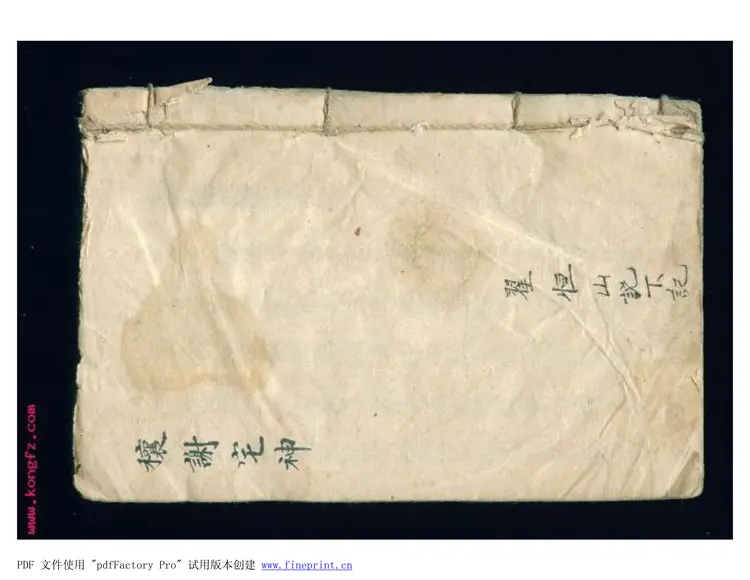 翟恒山説下記
禳謝宅神
www.kongfz.com
PDF 文件使用 "pdfFactory Pro" 试用版本创建 www.fineprint.cn